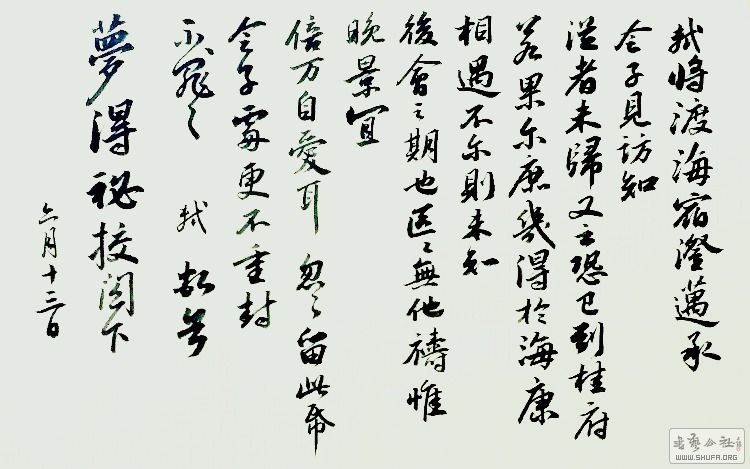 軾將渡海宿澄邁承
令子見訪知
從者未歸又云恐已到桂府
若果尔庶幾得於海康
相遇不尔則未知
後會之期也區〻無他禱惟
晚景宜
倍万自愛耳忽〻留此帋
令子處更不重封
不罪〻 軾 頓首
夢得秘校閣下
六月十三日
書藝公社
WWW.SHUFA.ORG